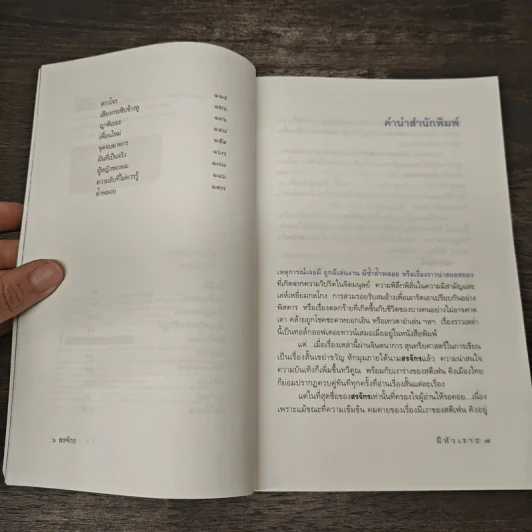 ดวงโจร ๒๒๔
เสียงกระซิบข้างหู ๒๓๖
ญาติเยอะ
เพื่อนใหม่ ๒๔๘
จุดจบฆาตกร ๒๕๙
ฝันที่เป็นจริง ๒๖๗
ผู้หญิงของผม ๒๗๘
ความลับที่ไม่ควรรู้ ๒๘๖
ล้ำพลอย ๒๙๗
๖ สรจักร
คำนำสำนักพิมพ์
เหตุการณ์เจอผี ถูกผีเล่นงาน ผีซ้ำด้ำพลอย หรือเรื่องราวน่าสยดสยอง
ที่เกิดจากความวิปริตในจิตมนุษย์ ความพิลึกพิลั่นในความมีสามัญและ
เล่ห์เหลี่ยมกลโกง การสวมรอยรับสมอ้างเพื่อเอารัดเอาเปรียบกันอย่าง
พิสดาร หรือเรื่องตลกร้ายที่เกิดขึ้นกับชีวิตของบางคนอย่างไม่อาจคาด
เดา คล้ายถูกโชคชะตาหยอกเอิน หรือเทวดาอำเล่น ฯลฯ เรื่องราวเหล่า
นี้เป็นทอล์กออฟเดอะทาวน์เสมอเมื่ออยู่ในหนังสือพิมพ์
แต่...เมื่อเรื่องเหล่านี้ผ่านจินตนาการ สุนทรียศาสตร์ในการเขียน
เป็นเรื่องสั้นเขย่าขวัญ หักมุมภายใต้นามสรจักรแล้ว ความน่าสนใจ
ความบันเทิงก็เพิ่มขึ้นทวีคูณ พร้อมกับเงาร่างของสตีเฟน คิงเมืองไทย
ก็ย่อมปรากฏควบคู่ทันทีทุกครั้งที่อ่านเรื่องสั้นแต่ละเรื่อง
แต่ในที่สุดชื่อของสรจักรเท่านั้นที่ครองใจผู้อ่านให้รอคอย...เนื่อง
เพราะแม้ขณะที่ความเข้มข้น คมคายของเรื่องมีเงาของสตีเฟน คิงอยู่
ผีหัวเราะ ๗